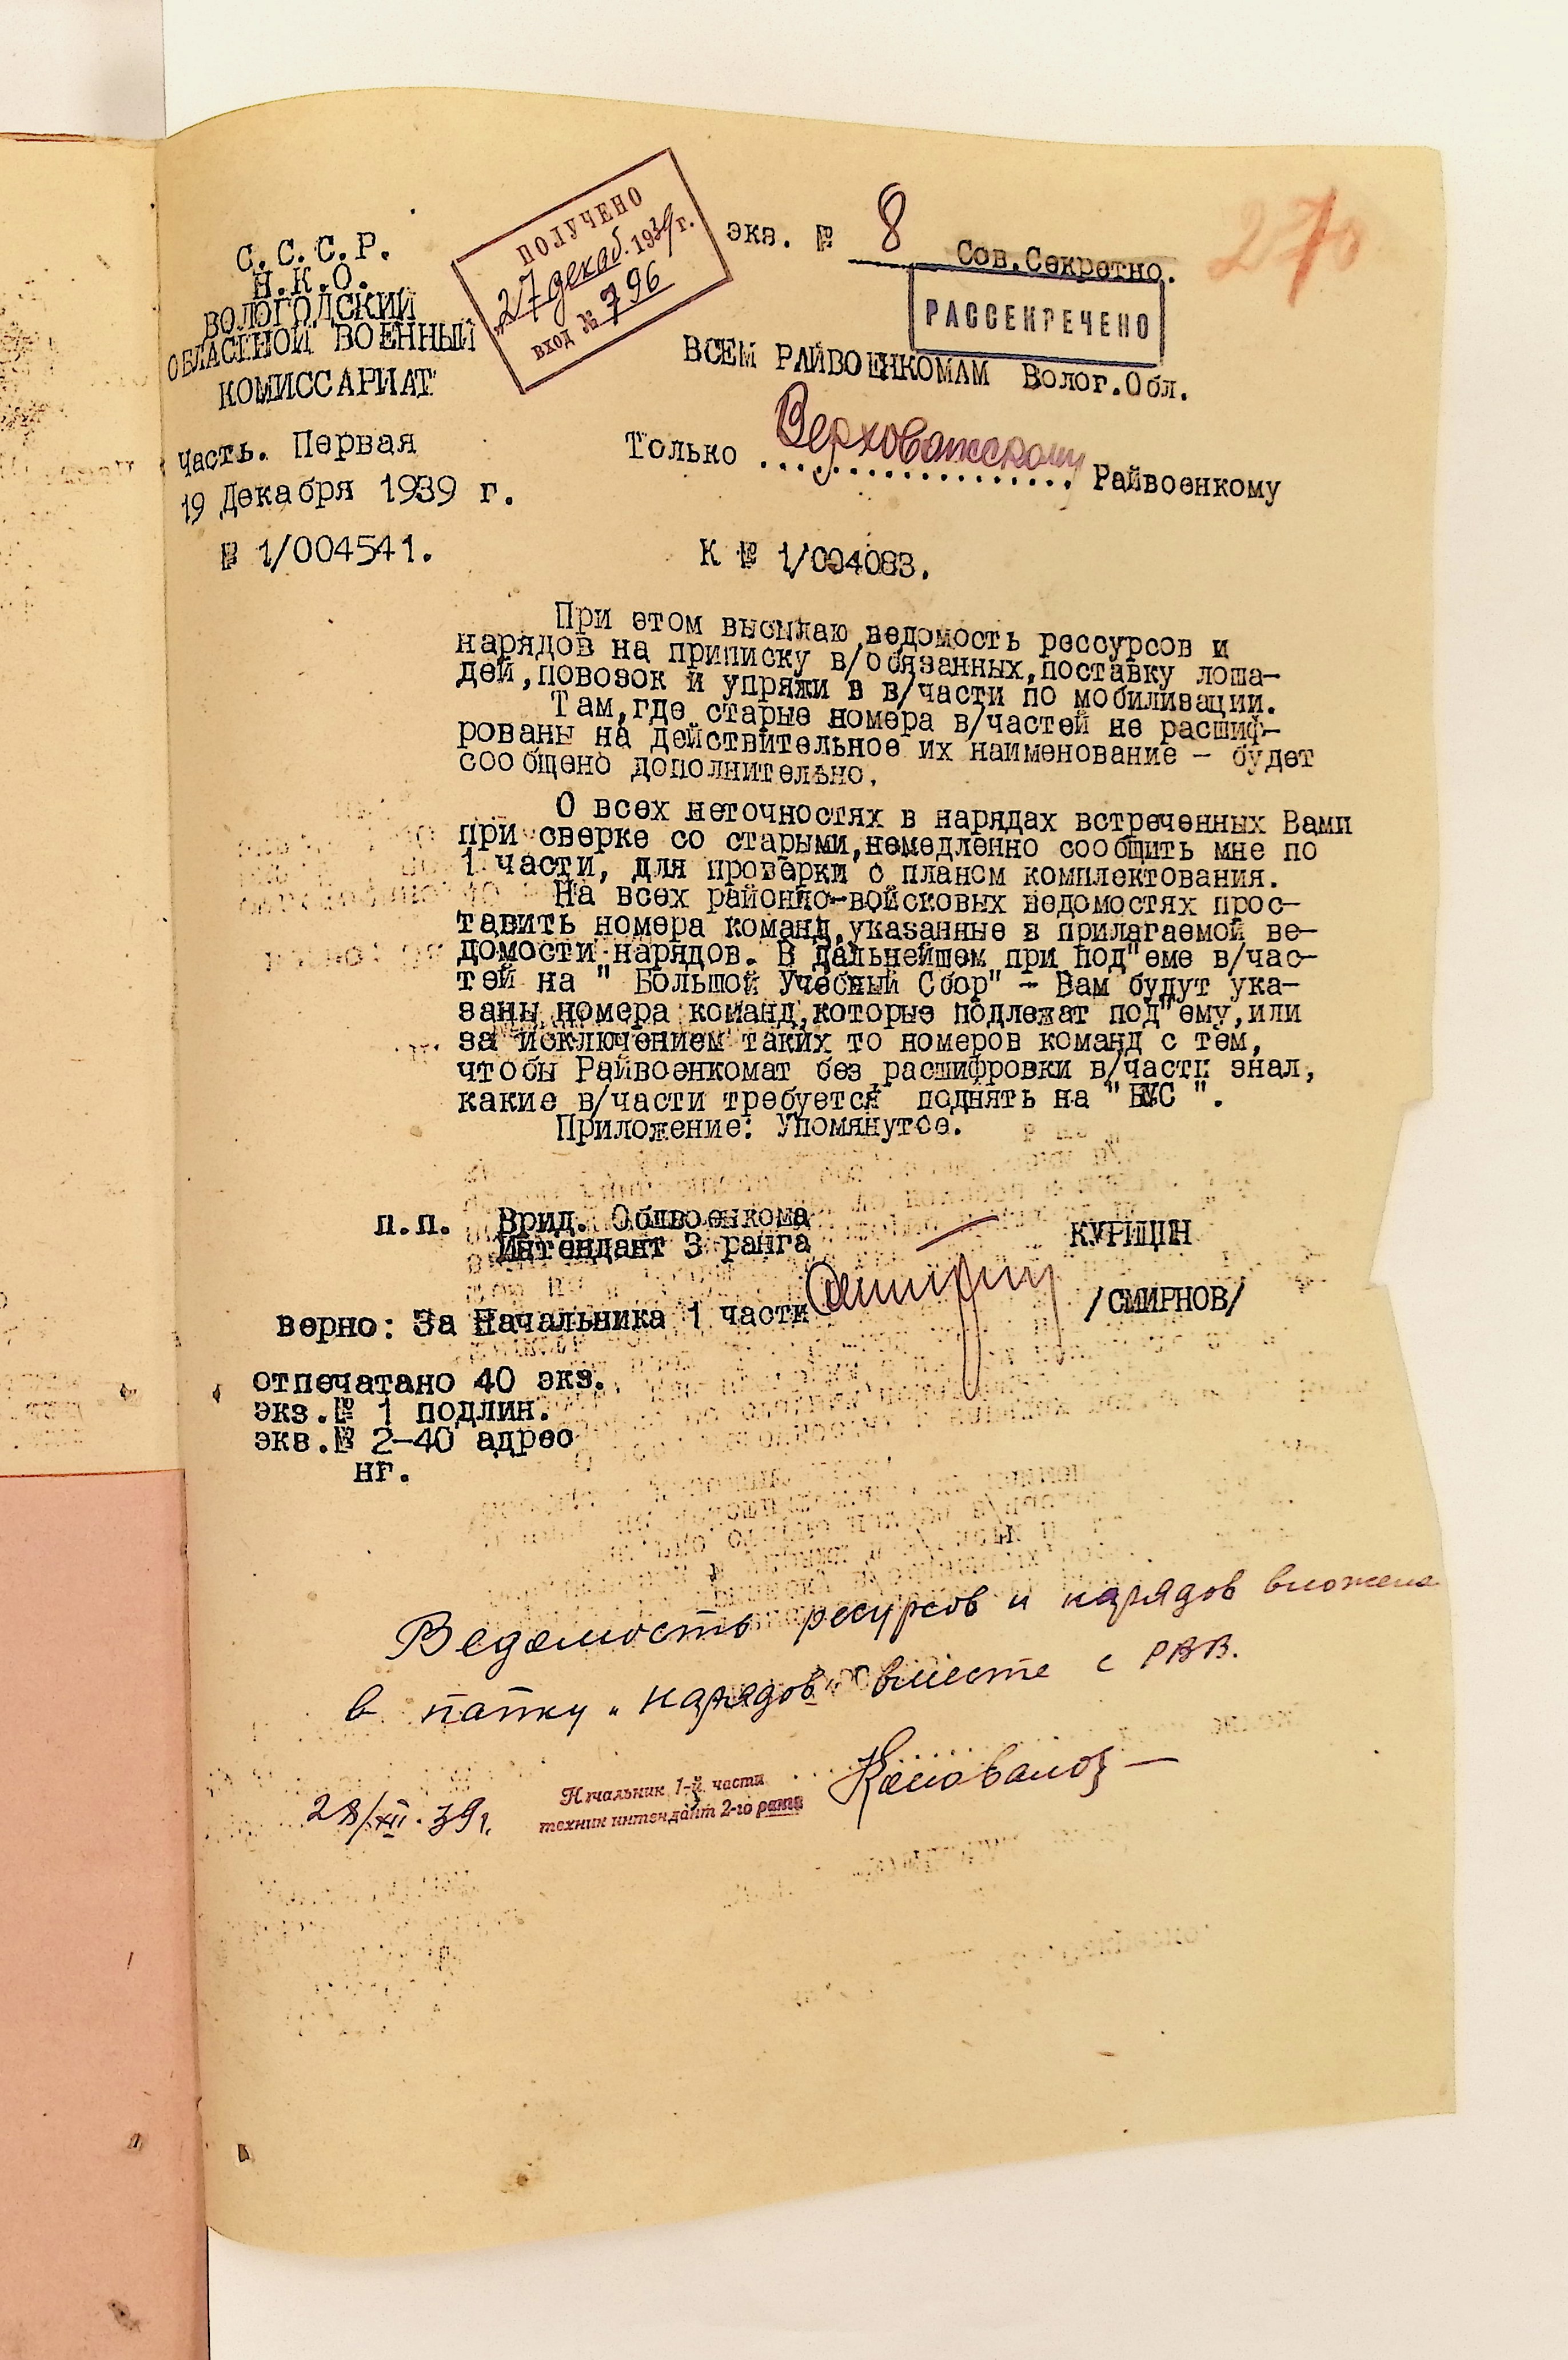 С.С.С.Р.
Н.К.О.
ВОЛОГОДСКИЙ
ОБЛАСТНОЙ ВОЕННЫЙ
КОМИССАРИАТ
часть. Первая
19 Декабря 1939 г.
№ 1/004541.
ПОЛУЧЕНО
„27 декаб. 1939 г.
ВХОД № 796
экз. № 8 Сов.Секретно.
270
РАССЕКРЕЧЕНО
ВСЕМ РАЙВОЕНКОМАМ Волог.Обл.
Только Верховажскому Райвоенкому
К № 1/004083.
При этом высылаю ведомость рессурсов и
нарядов на приписку в/обязанных,поставку лоша-
дей,повозок и упряжи в в/части по мобилизации.
Там,где старые номера в/частей не расшиф-
рованы на действительное их наименование - будет
сообщено дополнительно.
О всех неточностях в нарядах встреченных Вами
при сверке со старыми,немедленно сообщить мне по
1 части, для проверки с планом комплектования.
На всех районно-войсковых ведомостях прос-
тавить номера команд,указанные в прилагаемой ве-
домости нарядов. В дальнейшем при под"еме в/час-
тей на " Большой Учебный Сбор" - Вам будут ука-
заны номера команд,которые подлежат под"ему,или
за исключением таких то номеров команд с тем,
чтобы Райвоенкомат без расшифровки в/части знал,
какие в/части требуется поднять на " БУС ".
Приложение: Упомянутое.
п.п. Врид. Облвоенкома
Интендант 3 ранга КУРИЦИН
верно: За Начальника 1 части /СМИРНОВ/
отпечатано 40 экз.
экз.№ 1 подлин.
экз.№ 2-40 адрес
нг.
Ведомость ресурсов и нарядов вложена
в папку „нарядов" вместе с РВВ.
28/XII.39г.
Начальник 1-й части
техник интендант 2-го ранга